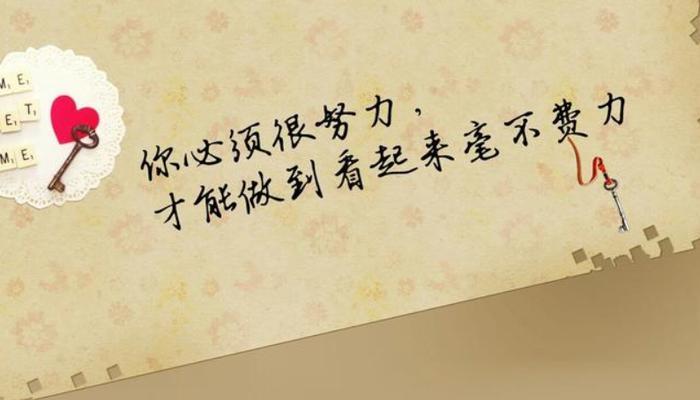 M E,
E T,
M E,
你必须很努力，
才能做到看起来毫不费力